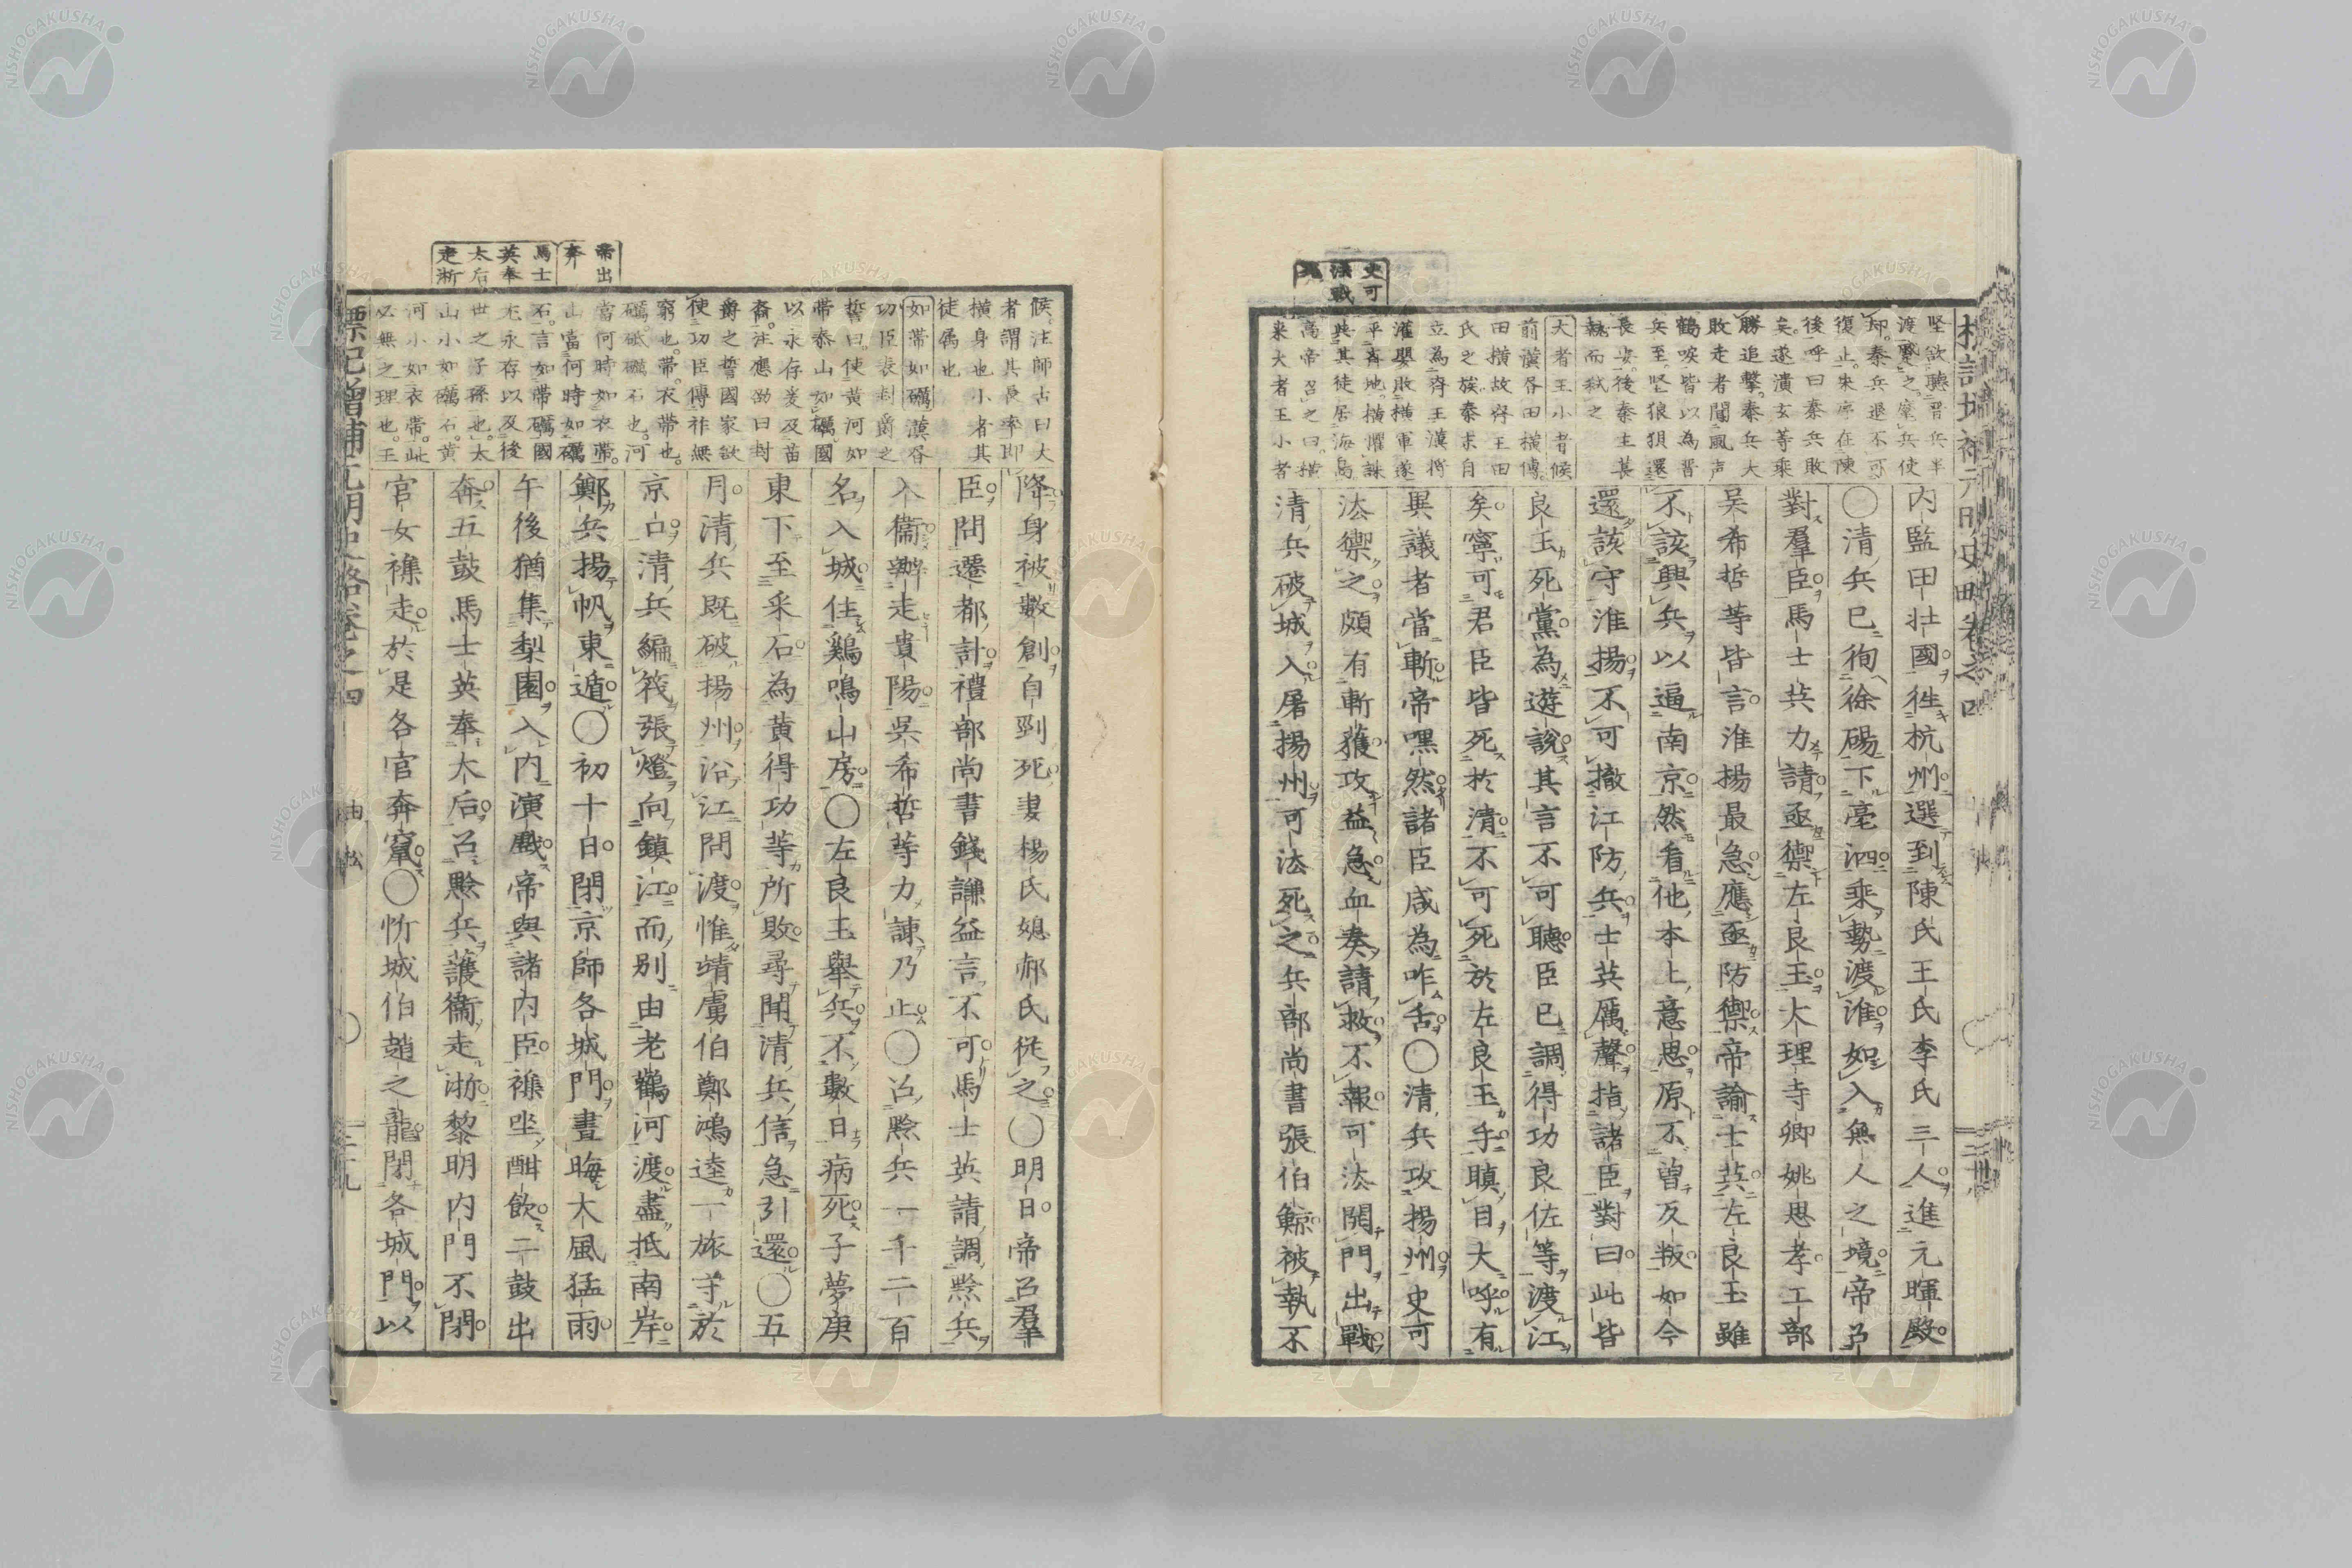 史可
法戰
死
堅欲聽晉兵半
渡蹙之麾兵使
却。秦兵退不可
復止。朱序在陳
後呼曰秦兵敗
矣。遂潰玄等乘
勝追擊。秦兵大
敗走者聞風声
鶴唳皆以為晉
兵至。堅狼狽還
長安。後秦主萇
執而弒之
大者王小者候
前漢各田横傳。
田横故齊王田
氏之族。秦末自
立為齊王漢将
灌嬰敗横軍遂
平斉地。横懼誅
與其徒居海島
高帝召之曰。横
来大者王小者
内監田壯國徃杭州選到陳氏王氏李氏三人進元暉殿
〇清兵已徇徐碭下亳泗乘勢渡淮如入無人之境帝召
對羣臣馬士英力請亟禦左良玉大理寺卿姚思孝工部
吳希哲等皆言淮揚最急應亟防禦帝諭士英左良玉雖
不該興兵以逼南京然看他本上意思原不曾反叛如今
還該守淮揚不可撤江防兵士英厲聲指諸臣對曰此皆
良玉死黨為遊說其言不可聽臣已調得功良佐等渡江
矣寧可君臣皆死於清不可死於左良玉手瞋目大呼有
異議者當斬帝嘿然諸臣咸為咋舌〇清兵攻揚州史可
法禦之頗有斬獲攻益急血奏請救不報可法開門出戰
清兵破城入屠揚州可法死之兵部尚書張伯鯨被執不
帝出
奔
馬士
英奉
太后
走浙
候。注師古曰大
者謂其長率即
横身也小者其
徒属也
如帯如礪漢各
功臣表封爵之
誓曰。使黄河如
帯泰山如礪國
以永存爰及苗
裔。注應劭曰封
爵之誓國家欲
使功臣傳祚無
窮也。帯。衣帯也。
礪。砥礪石也。河
當何時如衣帯。
山當何時如礪
石。言如帯礪國
尤永存以及後
世之子孫也。太
山小如礪石。黄
河小如衣帯。此
必無之理也。王
降身被數創自剄死妻楊氏媳郝氏従之〇明日帝召羣
臣問遷都計禮部尚書錢謙益言不可馬士英請調黔兵
入衞辦走貴陽吳希哲等力諌乃止〇召黔兵一千二百
名入城住鷄鳴山房〇左良玉舉兵不數日病死子夢庚
東下至采石為黄得功等所敗尋聞清兵信急引還〇五
月清兵既破揚州沿江問渡惟靖虜伯鄭鴻逵一旅守於
京口清兵編筏張燈向鎮江而别由老鸛河渡盡抵南岸
鄭兵揚帆東遁〇初十日閉京師各城門晝晦大風猛雨
午後猶集梨園入内演戱帝與諸内臣襍坐酣飲二鼓出
奔五鼓馬士英奉太后召黔兵護衞走浙黎明内門不閉
官女襍走於是各官奔竄〇忻城伯趙之龍閉各城門以
標記增補元明史略卷之四